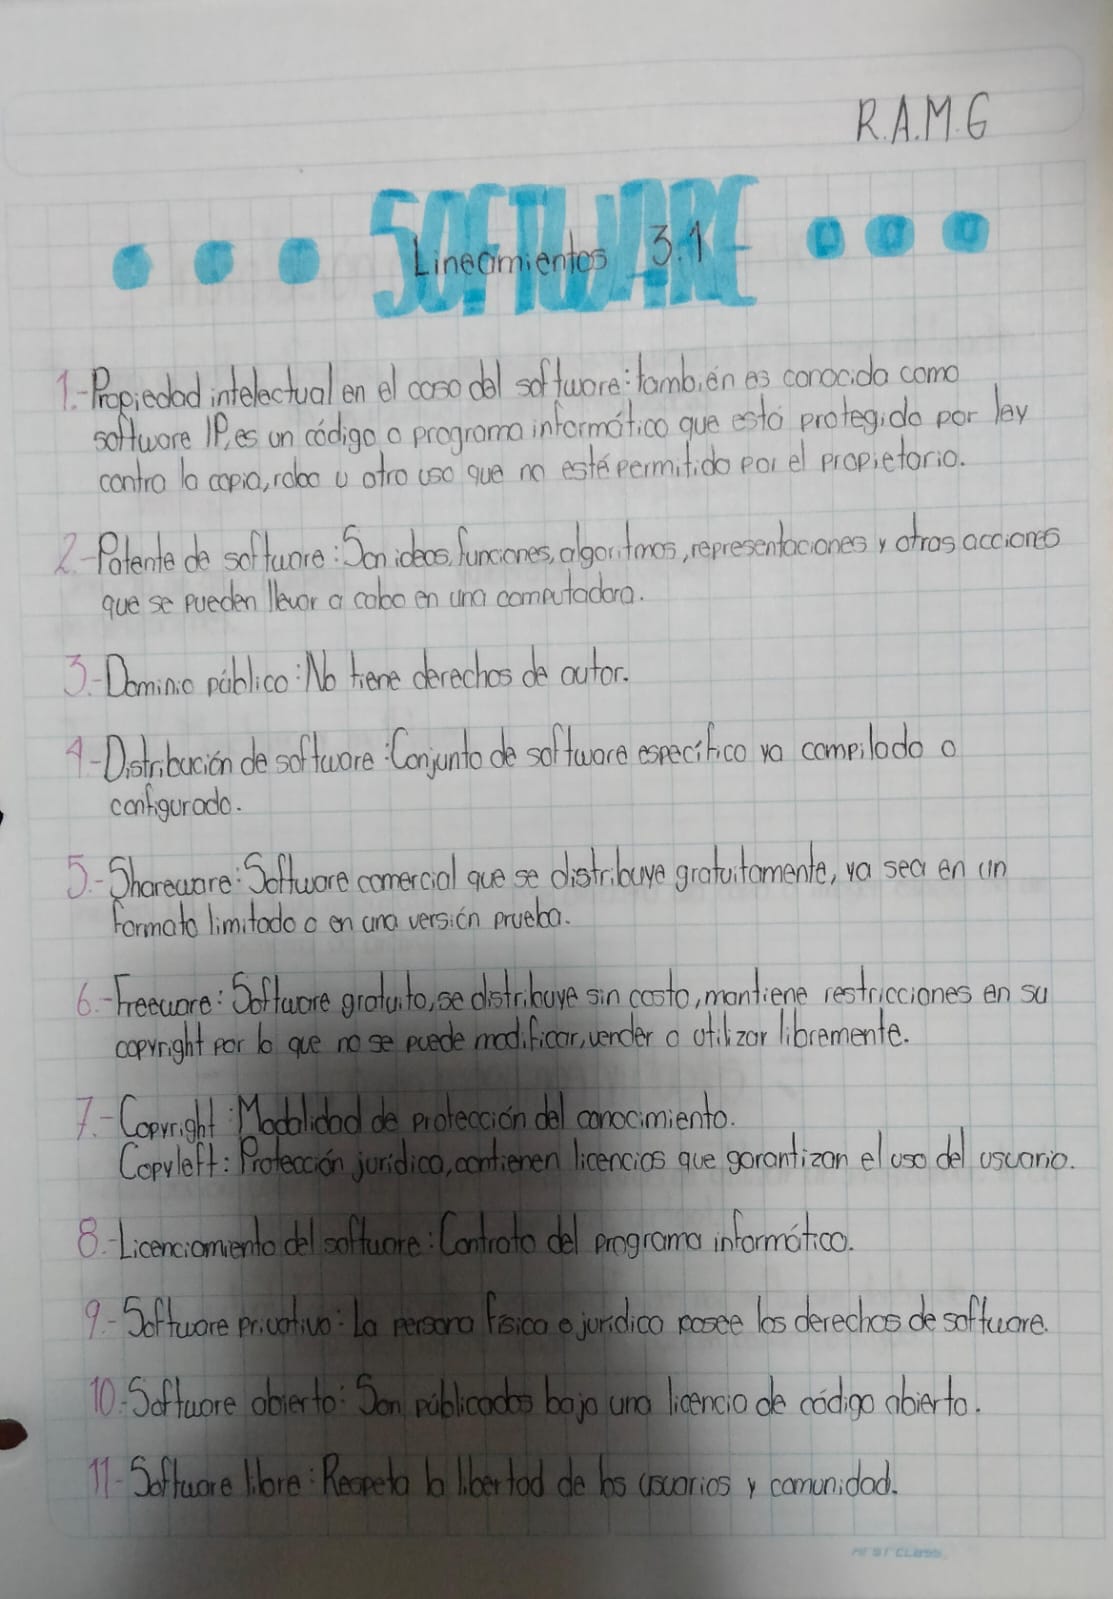 R.A.M.G
SOFTWARE
Lineamientos 3.1
1.-Propiedad intelectual en el caso del software: también es conocida como
software IP, es un código o programa informático que está protegido por ley
contra la copia, robo u otro uso que no esté permitido por el propietario.
2.-Patente de software: Son ideas, funciones, algoritmos, representaciones y otras acciones
que se pueden llevar a cabo en una computadora.
3.-Dominio público: No tiene derechos de autor.
4-Distribución de software: Conjunto de software específico ya compilado o
configurado.
5.-Shareware: Software comercial que se distribuye gratuitamente, ya sea en un
formato limitado o en una versión prueba.
6.-Freeware: Software gratuito, se distribuye sin costo, mantiene restricciones en su
copyright por lo que no se puede modificar, vender o utilizar libremente.
7.-Copyright: Modalidad de protección del conocimiento.
Copyleft: Protección jurídica, contienen licencias que garantizan el uso del usuario.
8.-Licenciamiento del software: Contrato del programa informático.
9.-Software privativo: La persona física o jurídica posee los derechos de software.
10.-Software abierto: Son públicados bajo una licencia de código abierto.
11-Software libre: Respeta la libertad de los usuarios y comunidad.